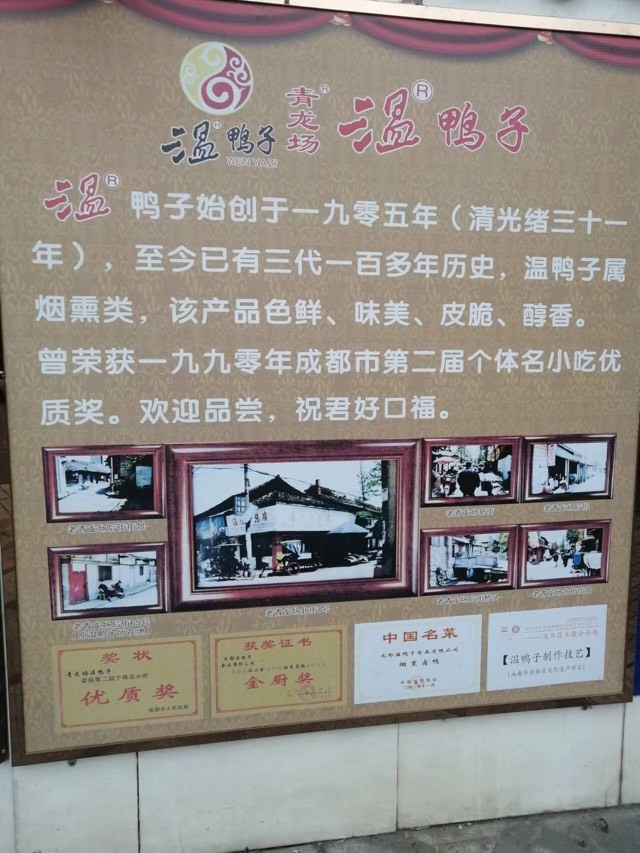 温®鸭子
WEN YAZI
青龙场®
温®鸭子
温® 鸭子始创于一九零五年（清光绪三十一
年），至今已有三代一百多年历史，温鸭子属
烟熏类，该产品色鲜、味美、皮脆、醇香。
曾荣获一九九零年成都市第二届个体名小吃优
质奖。欢迎品尝，祝君好口福。
奖状
青龙场温鸭子
荣获第二届个体名小吃
优质奖
成都市人民政府
获奖证书
金厨奖
中国名菜
成都温鸭子食品有限公司
烟熏卤鸭
【温鸭子制作技艺】